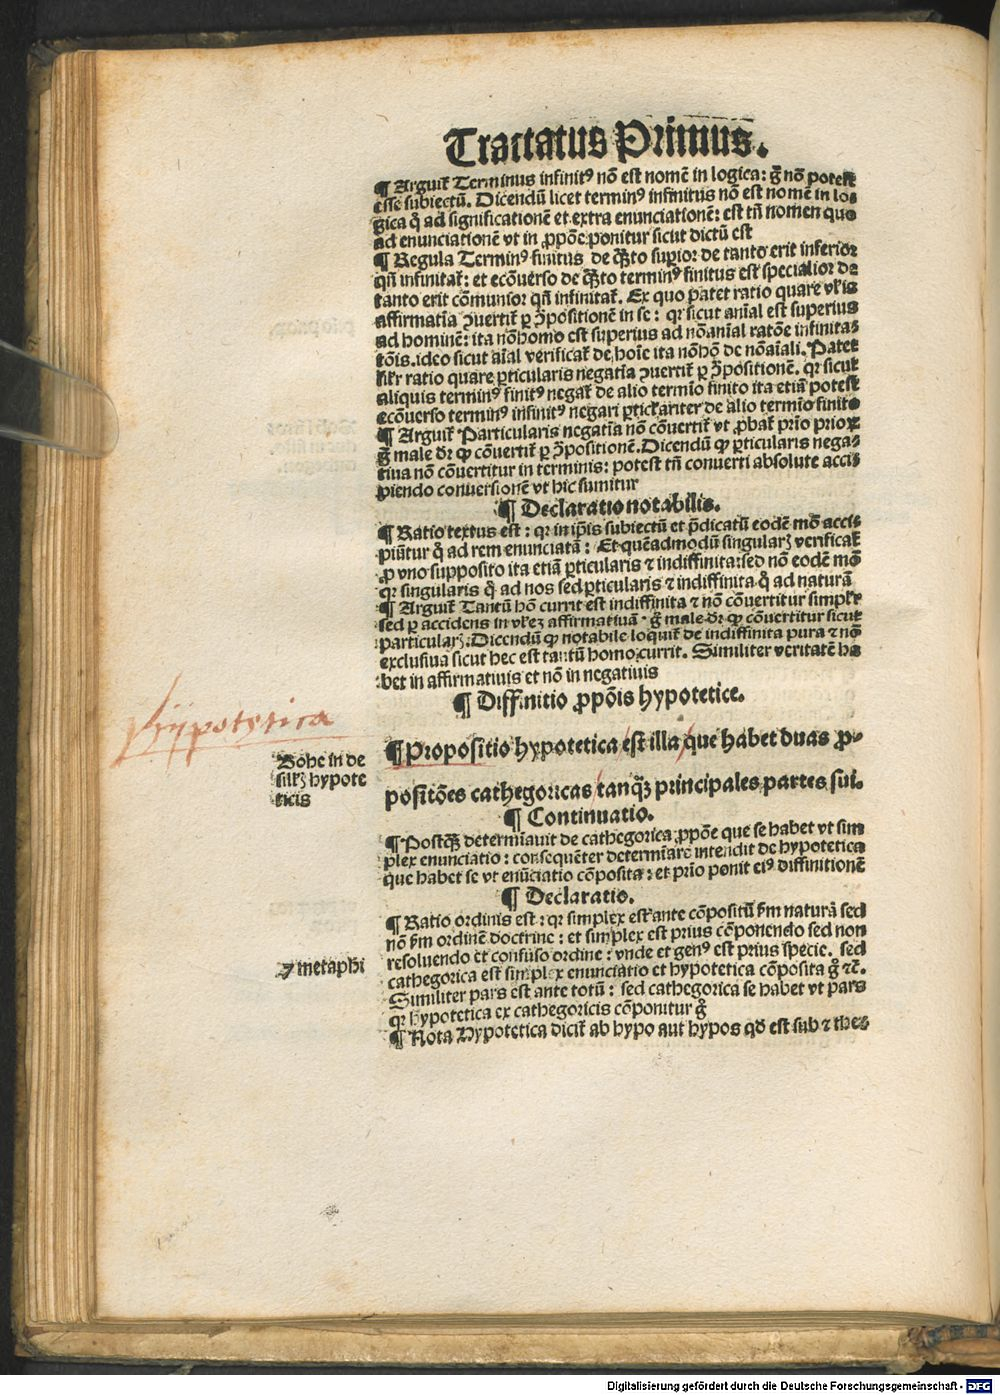 Tractatus Primus.
¶ Arguit᷑ Terminus infinitꝰ nō est nomē in logica: g̊ nō potest
esse subiectū. Dicendū licet terminꝰ infinitus nō est nomē in lo⸗
gica q̊ ad significationē et extra enunciationē: est tn̄ nomen quo
ad enunciationē vt in ꝓpōe ponitur sicut dictū est
¶ Regula Terminꝰ finitus de qꝫ̄to suꝑior de tanto erit inferior
qn̄ infinitat᷑: et ecōuerso de qꝫ̄to terminꝰ finitus est specialior de
tanto erit cōmunior qn̄ infinitat᷑. Ex quo patet ratio quare vl̄is
affirmatīa ꝯuertit᷑ ꝑ ꝯ̄positionē in se: qꝛ sicut aīal est superius
ad hominē: ita nōhomo est superius ad nōanīal ratōe infinita⸗
tōis. ideo sicut aīal verificat᷑ de hoīe ita nōhō de nōaīali. Patet
sil̄r ratio quare ꝑticularis negatīa ꝯuertit᷑ ꝑ ꝯ̄positionē. qꝛ sicut
aliquis terminꝰ finitꝰ negat᷑ de alio termīo finito ita etiā potest
ecōuerso terminꝰ infinitꝰ negari ꝑticlariter de alio termīo finito
¶ Arguit᷑ Particularis negatīa nō cōuertit᷑ vt ꝓbat᷑ prīo prioꝝ
g̊ male dr̄ ꝙ cōuertit᷑ ꝑ ꝯ̄positionē. Dicendū ꝙ ꝑticularis nega⸗
tiua nō cōuertitur in terminis: potest tn̄ conuerti absolute acci⸗
piendo conuersionē vt hic sumitur
¶ Declaratio notabilis.
¶ Ratio textus est: qꝛ in ip̄is subiectū et p̄dicatū eodē mō acci⸗
piūtur q̊ ad rem enunciatā: Et quēadmodū singularꝫ verificat᷑
ꝓ vno supposito ita etiā ꝑticularis ⁊ indiffinita: sed nō eodē mō
qꝛ singularis q̊ ad nos sed ꝑticularis ⁊ indiffinita q̊ ad naturā
¶ Arguit᷑ Tantū hō currit est indiffinita ⁊ nō cōuertitur simpl̄r
sed ꝑ accidens in vl̄ez affirmatiuā. g̊ male dr̄ ꝙ cōuertitur sicut
particularꝫ. Dicendū ꝙ notabile loquit᷑ de indiffinita pura ⁊ nō
exclusiua sicut hec est tantū homo currit. Similiter veritatē ha
bet in affirmatiuis et nō in negatiuis
¶ Diffinitio ꝓpōis hypotetice.
hypotetica
¶ Propositio hypotetica est illa que habet duas ꝓ⸗
Bohe in de
sill̄ꝫ hypote
ticis
positōes cathegoricas tanqꝫ̄ principales partes sui.
¶ Continuatio.
¶ Postqꝫ̄ determīauit de cathegorica ꝓpōne que se habet vt sim
plex enunciatio: consequēter determīare intendit de hypotetica
que habet se vt enūciatio cōposita: et prīo ponit eiꝰ diffinitionē
¶ Declaratio.
¶ Ratio ordinis est: qꝛ simplex est ante cōpositū ẜm naturā sed
nō ẜm ordinē doctrine: et simplex est prius cōponendo sed non
resoluendo et confuso ordine: vnde et genꝰ est prius specie. sed
7 metaphi
cathegorica est simplex enunciatio et hypotetica cōposita g̊ ⁊c̄.
Similiter pars est ante totū: sed cathegorica se habet vt pars
qꝛ hypotetica ex cathegoricis cōponitur g̊
¶ Nota Hypotetica dicit᷑ ab hypo aut hypos qd̄ est sub ⁊ thes⸗
Digitalisierung gefördert durch die Deutsche Forschungsgemeinschaft - DFG